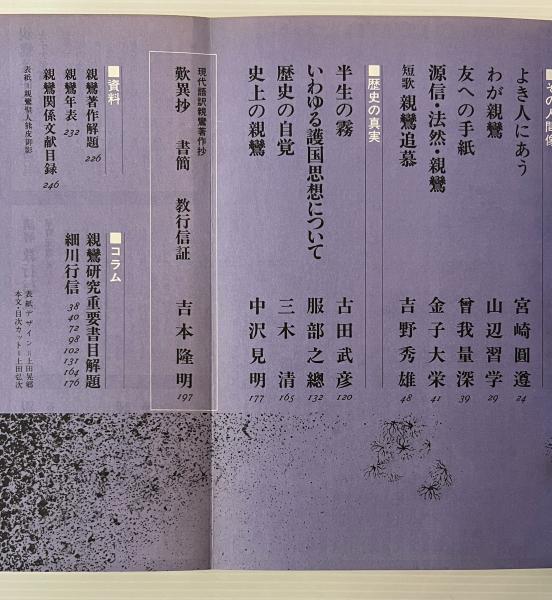 その人間像
よき人にあう 宮崎圓遵 24
わが親鸞 山辺習学 29
友への手紙 曾我量深 39
源信・法然・親鸞 金子大栄 41
短歌 親鸞追慕 吉野秀雄 48
■歴史の真実
半生の霧 古田武彦 120
いわゆる護国思想について 服部之總 132
歴史の自覚 三木清 165
史上の親鸞 中沢見明 177
現代語訳親鸞著作抄
歎異抄 書簡 教行信証 吉本隆明 197
■資料
親鸞著作解題 226
親鸞年表 232
親鸞関係文献目録 246
表紙=親鸞聖人熊皮御影
■コラム
親鸞研究重要書目解題
細川行信 38 40 72 98 102 131 164 176
表紙デザイン=上田晃郷
本文・目次カット=土田弘次